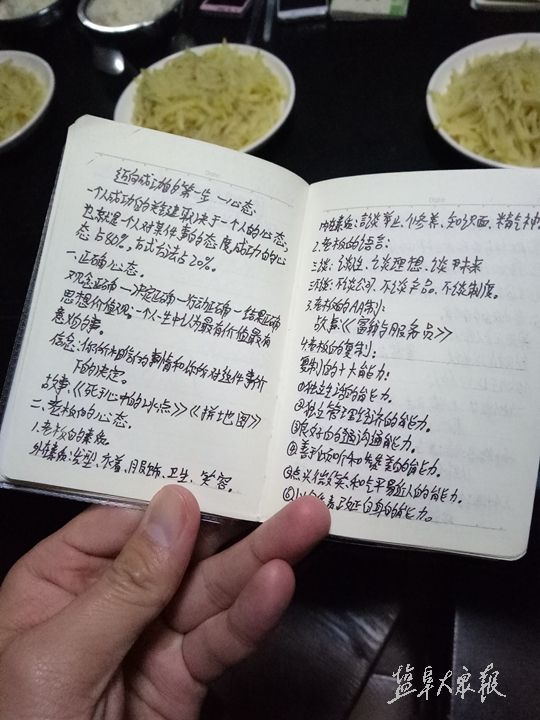 迈向成功的第一步—心态
一个人成功的关键取决于一个人的心态,
也就是一个人对某件事的态度,成功由的心
态占80%。方式方法占20%。
一.正确心态。
观念正确—决定正确—行动正确—结果正确
思想价值观。一个人一生中认为最有价值最有
意义的事。
信念:你所相信的事情和你所对这件事所
下的决定。
故事:《死于心中的冰点》《拼地图》
二.老板的心态。
1.老板的素质
外在素质:发型、衣着、月服饰、卫生、笑容。
内在素质:言谈举止、修养、知识面、精气神
2.老板的语言:
三谈:谈人生、谈理想、谈未来
三不谈:不谈公司、不谈产品、不谈制度。
3.老板的AA制:
故事:《富翁与服务员》
4.老板的复制:
复制的十大能力:
①独立生活的能力。
②独立管理经济的能力。
③良好的沟通能力。
④善于倾听和赞美的能力。
⑤点头微笑和平易近人的能力。
⑥
自身的能力。
盐阜大众报